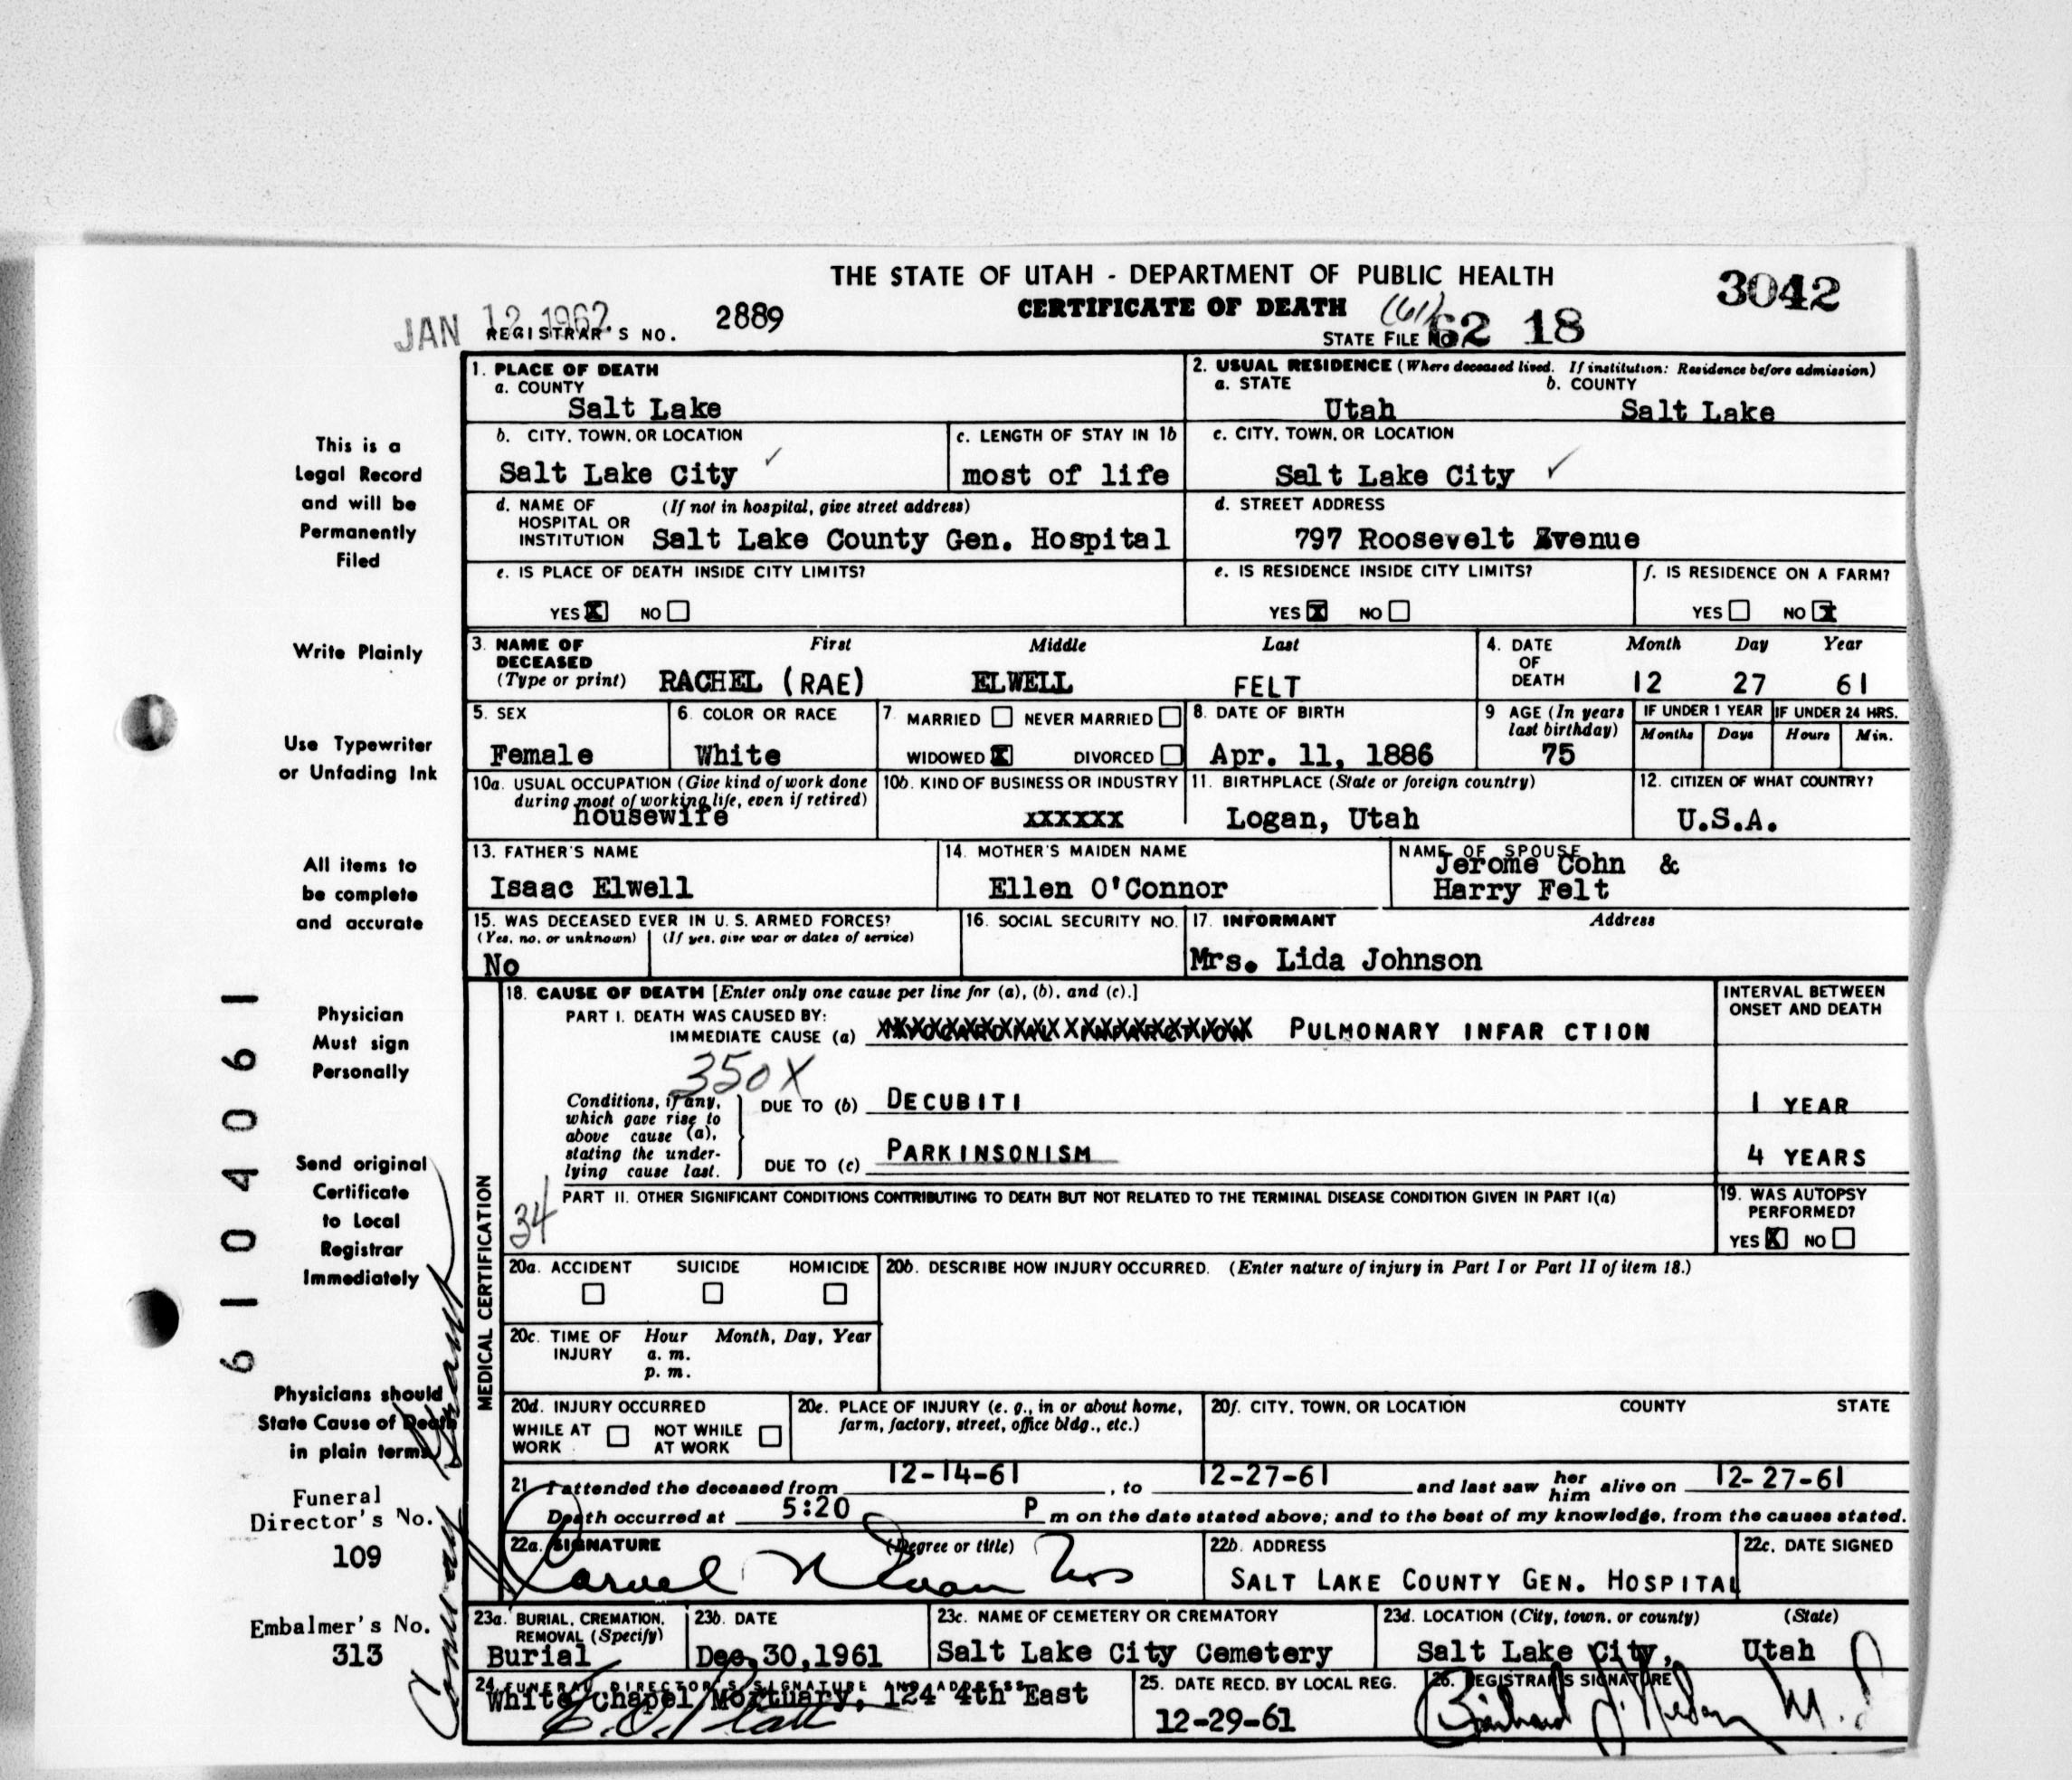 THE STATE OF UTAH - DEPARTMENT OF PUBLIC HEALTH
3042
CERTIFICATE OF DEATH
(61)
JAN 12 1962
REGISTRAR'S NO. 2889
STATE FILE NO. 62 18
1. PLACE OF DEATH
a. COUNTY
Salt Lake
2. USUAL RESIDENCE (Where deceased lived. If institution: Residence before admission)
a. STATE b. COUNTY
Utah Salt Lake
b. CITY, TOWN, OR LOCATION
Salt Lake City ✓
c. LENGTH OF STAY IN 1b
most of life
c. CITY, TOWN, OR LOCATION
Salt Lake City ✓
d. NAME OF (If not in hospital, give street address)
HOSPITAL OR
INSTITUTION Salt Lake County Gen. Hospital
d. STREET ADDRESS
797 Roosevelt Avenue
e. IS PLACE OF DEATH INSIDE CITY LIMITS?
YES X NO
e. IS RESIDENCE INSIDE CITY LIMITS?
YES X NO
f. IS RESIDENCE ON A FARM?
YES NO X
3. NAME OF First Middle Last
DECEASED
(Type or print) RACHEL (RAE) ELWELL FELT
4. DATE Month Day Year
OF
DEATH 12 27 61
5. SEX
Female
6. COLOR OR RACE
White
7. MARRIED NEVER MARRIED
WIDOWED X DIVORCED
8. DATE OF BIRTH
Apr. 11, 1886
9 AGE (In years
last birthday)
75
IF UNDER 1 YEAR
Months Days
IF UNDER 24 HRS.
Hours Min.
10a. USUAL OCCUPATION (Give kind of work done
during most of working life, even if retired)
housewife
10b. KIND OF BUSINESS OR INDUSTRY
xxxxxx
11. BIRTHPLACE (State or foreign country)
Logan, Utah
12. CITIZEN OF WHAT COUNTRY?
U.S.A.
13. FATHER'S NAME
Isaac Elwell
14. MOTHER'S MAIDEN NAME
Ellen O'Connor
NAME OF SPOUSE
Jerome Cohn &
Harry Felt
15. WAS DECEASED EVER IN U. S. ARMED FORCES?
(Yes, no, or unknown) (If yes, give war or dates of service)
No
16. SOCIAL SECURITY NO.
17. INFORMANT Address
Mrs. Lida Johnson
MEDICAL CERTIFICATION
18. CAUSE OF DEATH [Enter only one cause per line for (a), (b), and (c).]
PART I. DEATH WAS CAUSED BY:
IMMEDIATE CAUSE (a) PULMONARY INFAR CTION
INTERVAL BETWEEN
ONSET AND DEATH
350X
Conditions, if any,
which gave rise to
above cause (a),
stating the under-
lying cause last.
DUE TO (b) DECUBITI
1 YEAR
DUE TO (c) PARKINSONISM
4 YEARS
34
PART II. OTHER SIGNIFICANT CONDITIONS CONTRIBUTING TO DEATH BUT NOT RELATED TO THE TERMINAL DISEASE CONDITION GIVEN IN PART I(a)
19. WAS AUTOPSY
PERFORMED?
YES X NO
20a. ACCIDENT SUICIDE HOMICIDE
20b. DESCRIBE HOW INJURY OCCURRED. (Enter nature of injury in Part I or Part II of item 18.)
20c. TIME OF Hour Month, Day, Year
INJURY a. m.
p. m.
20d. INJURY OCCURRED
WHILE AT NOT WHILE
WORK AT WORK
20e. PLACE OF INJURY (e. g., in or about home,
farm, factory, street, office bldg., etc.)
20f. CITY, TOWN, OR LOCATION COUNTY STATE
21. I attended the deceased from 12-14-61, to 12-27-61 and last saw her him alive on 12-27-61
Death occurred at 5:20 P m on the date stated above; and to the best of my knowledge, from the causes stated.
22a. SIGNATURE (Degree or title)
22b. ADDRESS
SALT LAKE COUNTY GEN. HOSPITAL
22c. DATE SIGNED
23a. BURIAL, CREMATION,
REMOVAL (Specify)
Burial
23b. DATE
Dec. 30, 1961
23c. NAME OF CEMETERY OR CREMATORY
Salt Lake City Cemetery
23d. LOCATION (City, town, or county) (State)
Salt Lake City, Utah
24. FUNERAL DIRECTOR'S SIGNATURE AND ADDRESS
White Chapel Mortuary, 124 4th East
25. DATE RECD. BY LOCAL REG.
12-29-61
26. REGISTRAR'S SIGNATURE
This is a
Legal Record
and will be
Permanently
Filed
Write Plainly
Use Typewriter
or Unfading Ink
All items to
be complete
and accurate
Physician
Must sign
Personally
Send original
Certificate
to Local
Registrar
Immediately
Physicians should
State Cause of Death
in plain terms
Funeral
Director's No.
109
Embalmer's No.
313
6104061